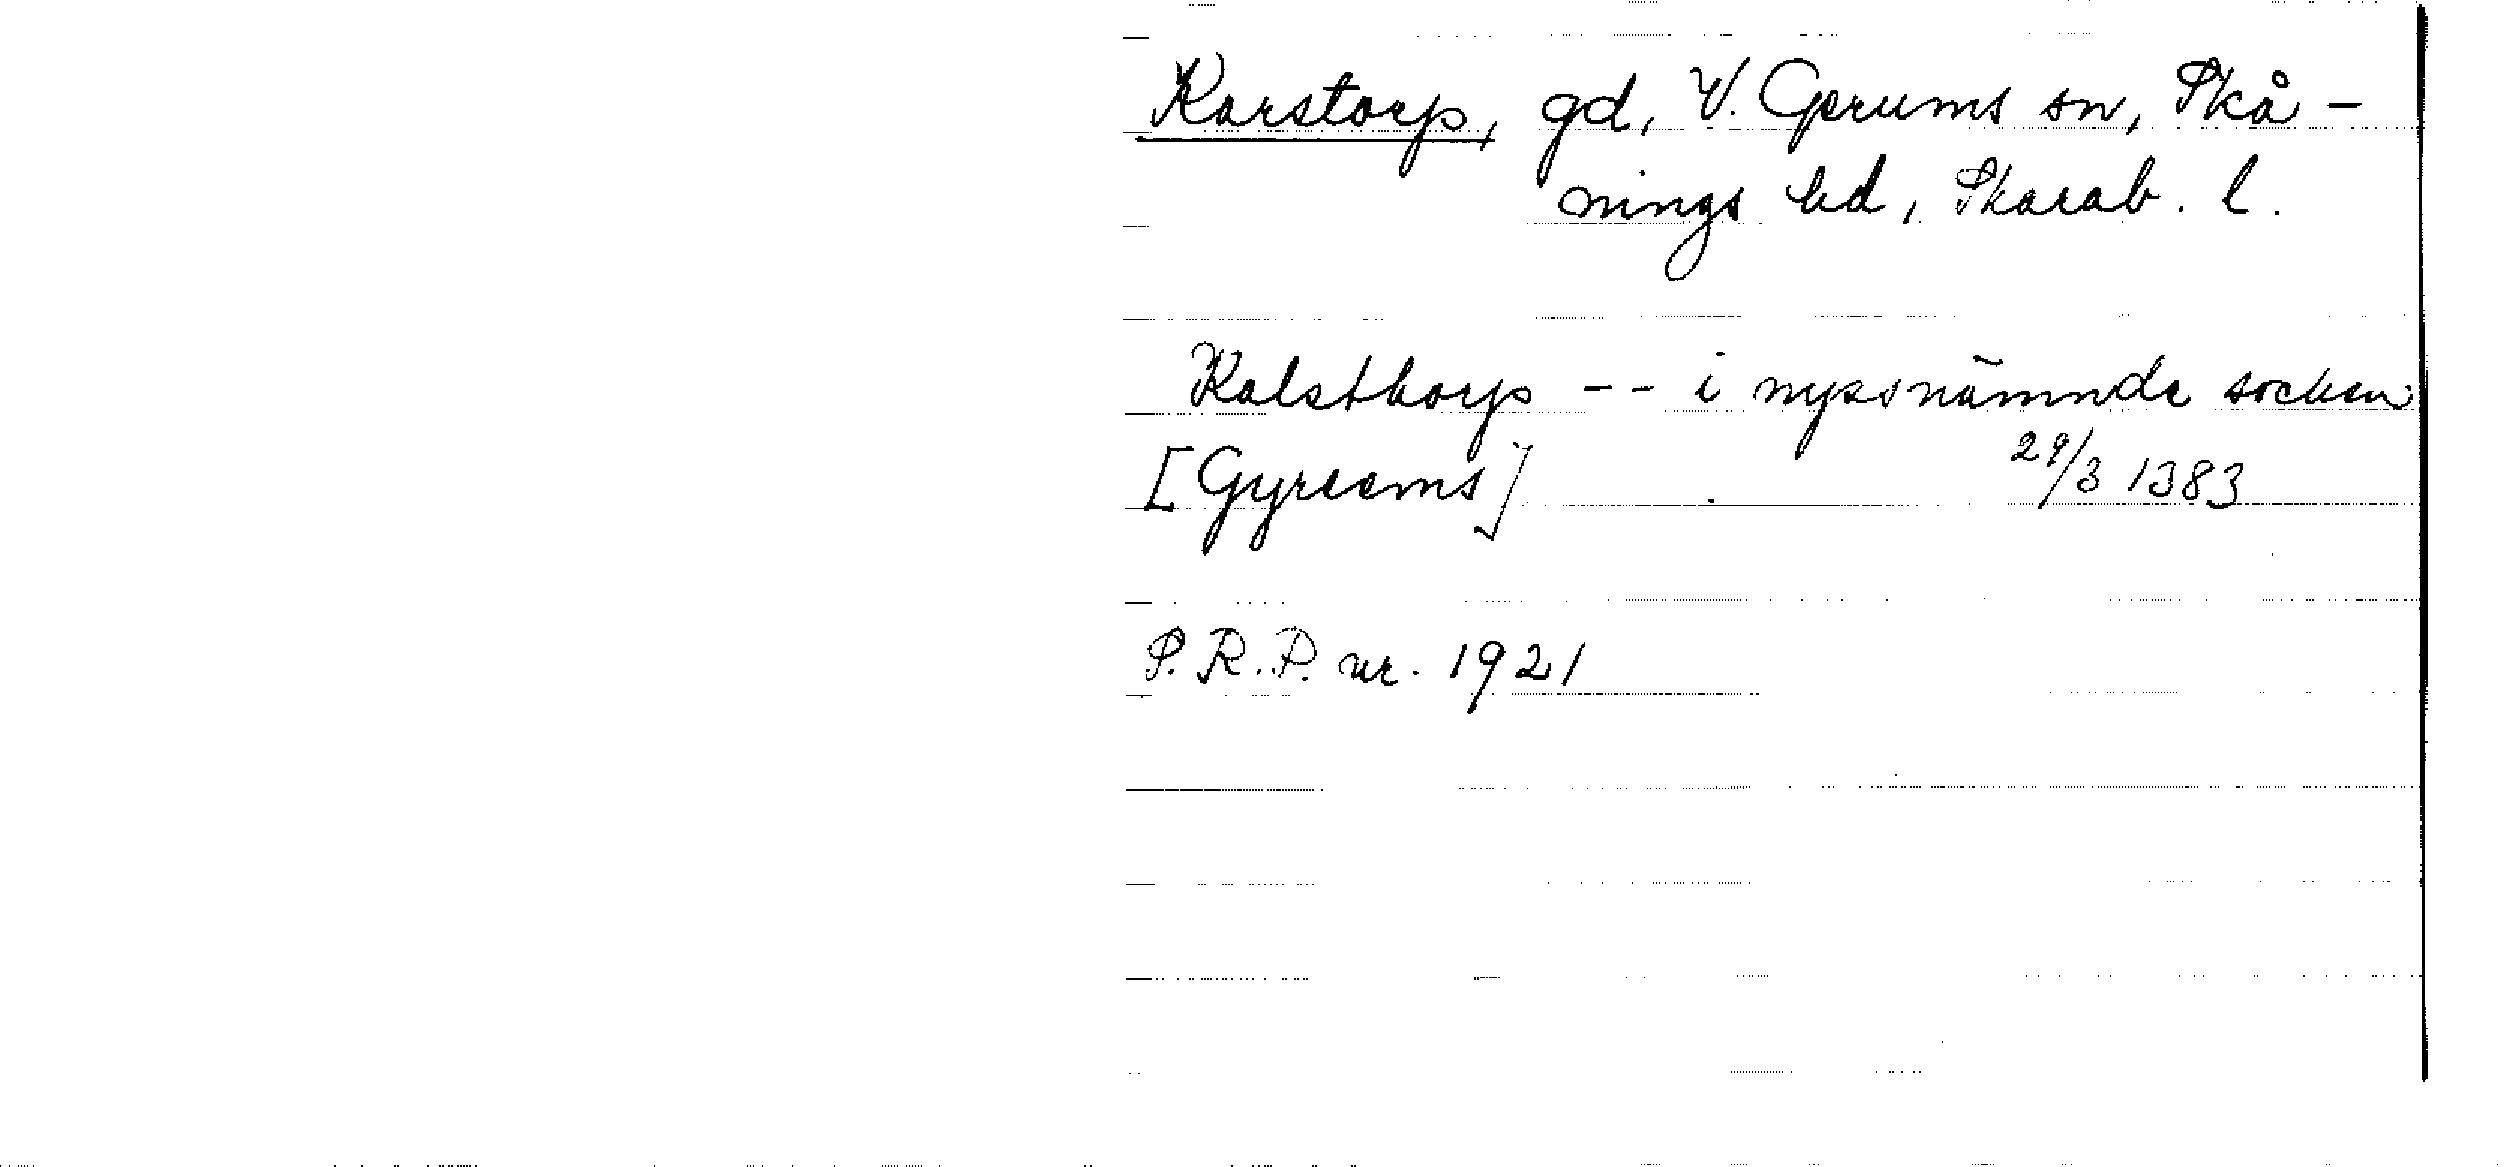 Karstorp, gd, V. Gerums sn, Skå-
nings hd, Skarab. l.
Kalsthorp -- i nyssnämnde socken
[Gyreems] 29/3 1383
S.R.P. nr. 1921